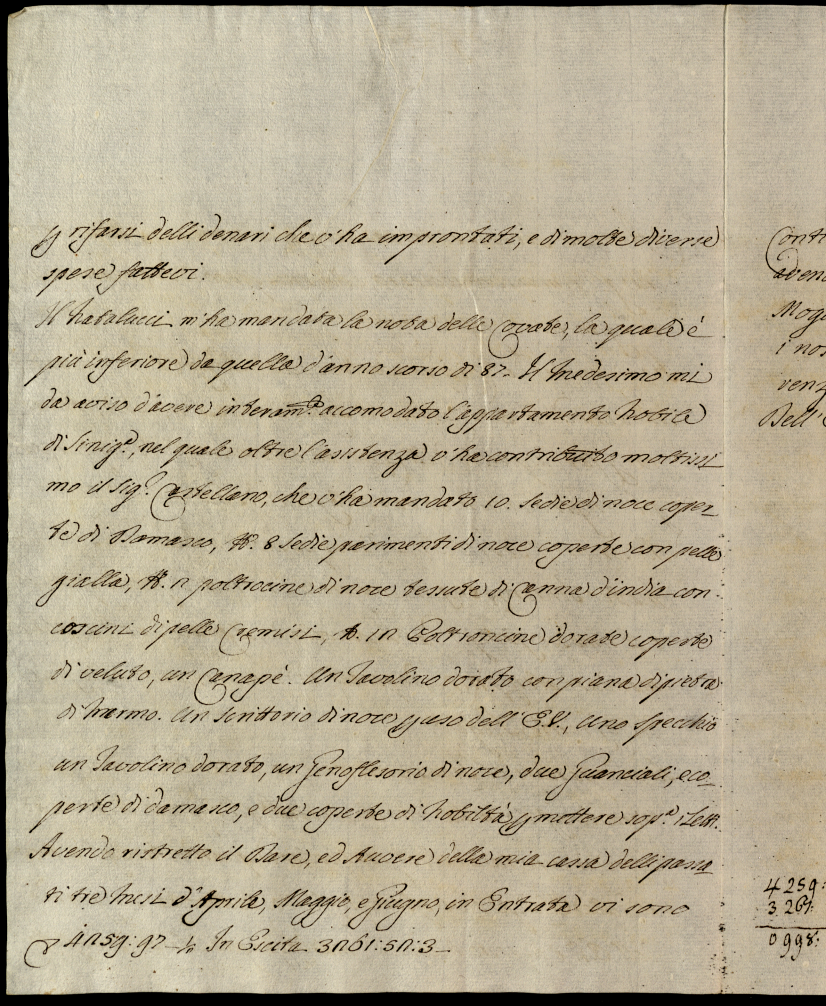 p rifarsi delli denari che v'ha improntati, e di molte diverse
spese fattevi.
Il Natalucci m'ha mandata la nota delle Covate, la quale è
più inferiore da quella d'anno scorso di 87- Il Medesimo mi
da aviso d'avere interam.te accomodato l'appartamento Nobile
di Sinig.a, nel quale oltre l'asistenza v'ha contribuito moltissi
mo il Sig.r Castellano, che v'ha mandato 10. Sedie di noce coper
te di Damasco, N. 8 Sedie parimenti di noce coperte con pelle
gialla, N. 2 poltrocine di noce tessute di Canna d'india con
coscini di pelle Cremisi, N. 12 Poltroncine dorate coperte
di veluto, un Canapé. Un Tavolino dorato con piana di pietra
di Marmo. Un Scrittorio di noce p uso dell'E.V., Uno Specchio
un Tavolino dorato, un Genoflesorio di noce, due Guanciali, e co-
perte di damasco, e due coperte di Nobiltà p mettere sop.a i Letti.
Avendo ristretto il Dare, ed Auvere della mia cassa delli passa
ti tre Mesi d'Aprile, Maggio, e Giugno, in Entrata vi sono
4259: 97 - ½ In Escita 3261: 52: 3-
Contr
aven
Mogl
i nos
venz
Dell'E
4259:
3261:
0998: